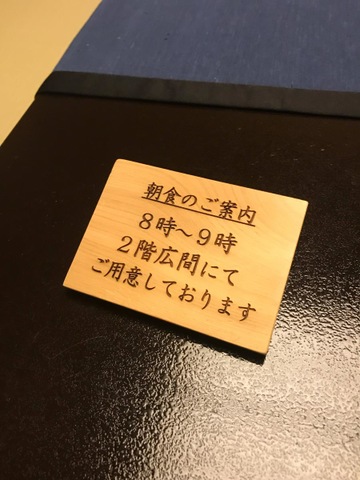 朝食のご案内
8時～9時
2階広間にて
ご用意しております